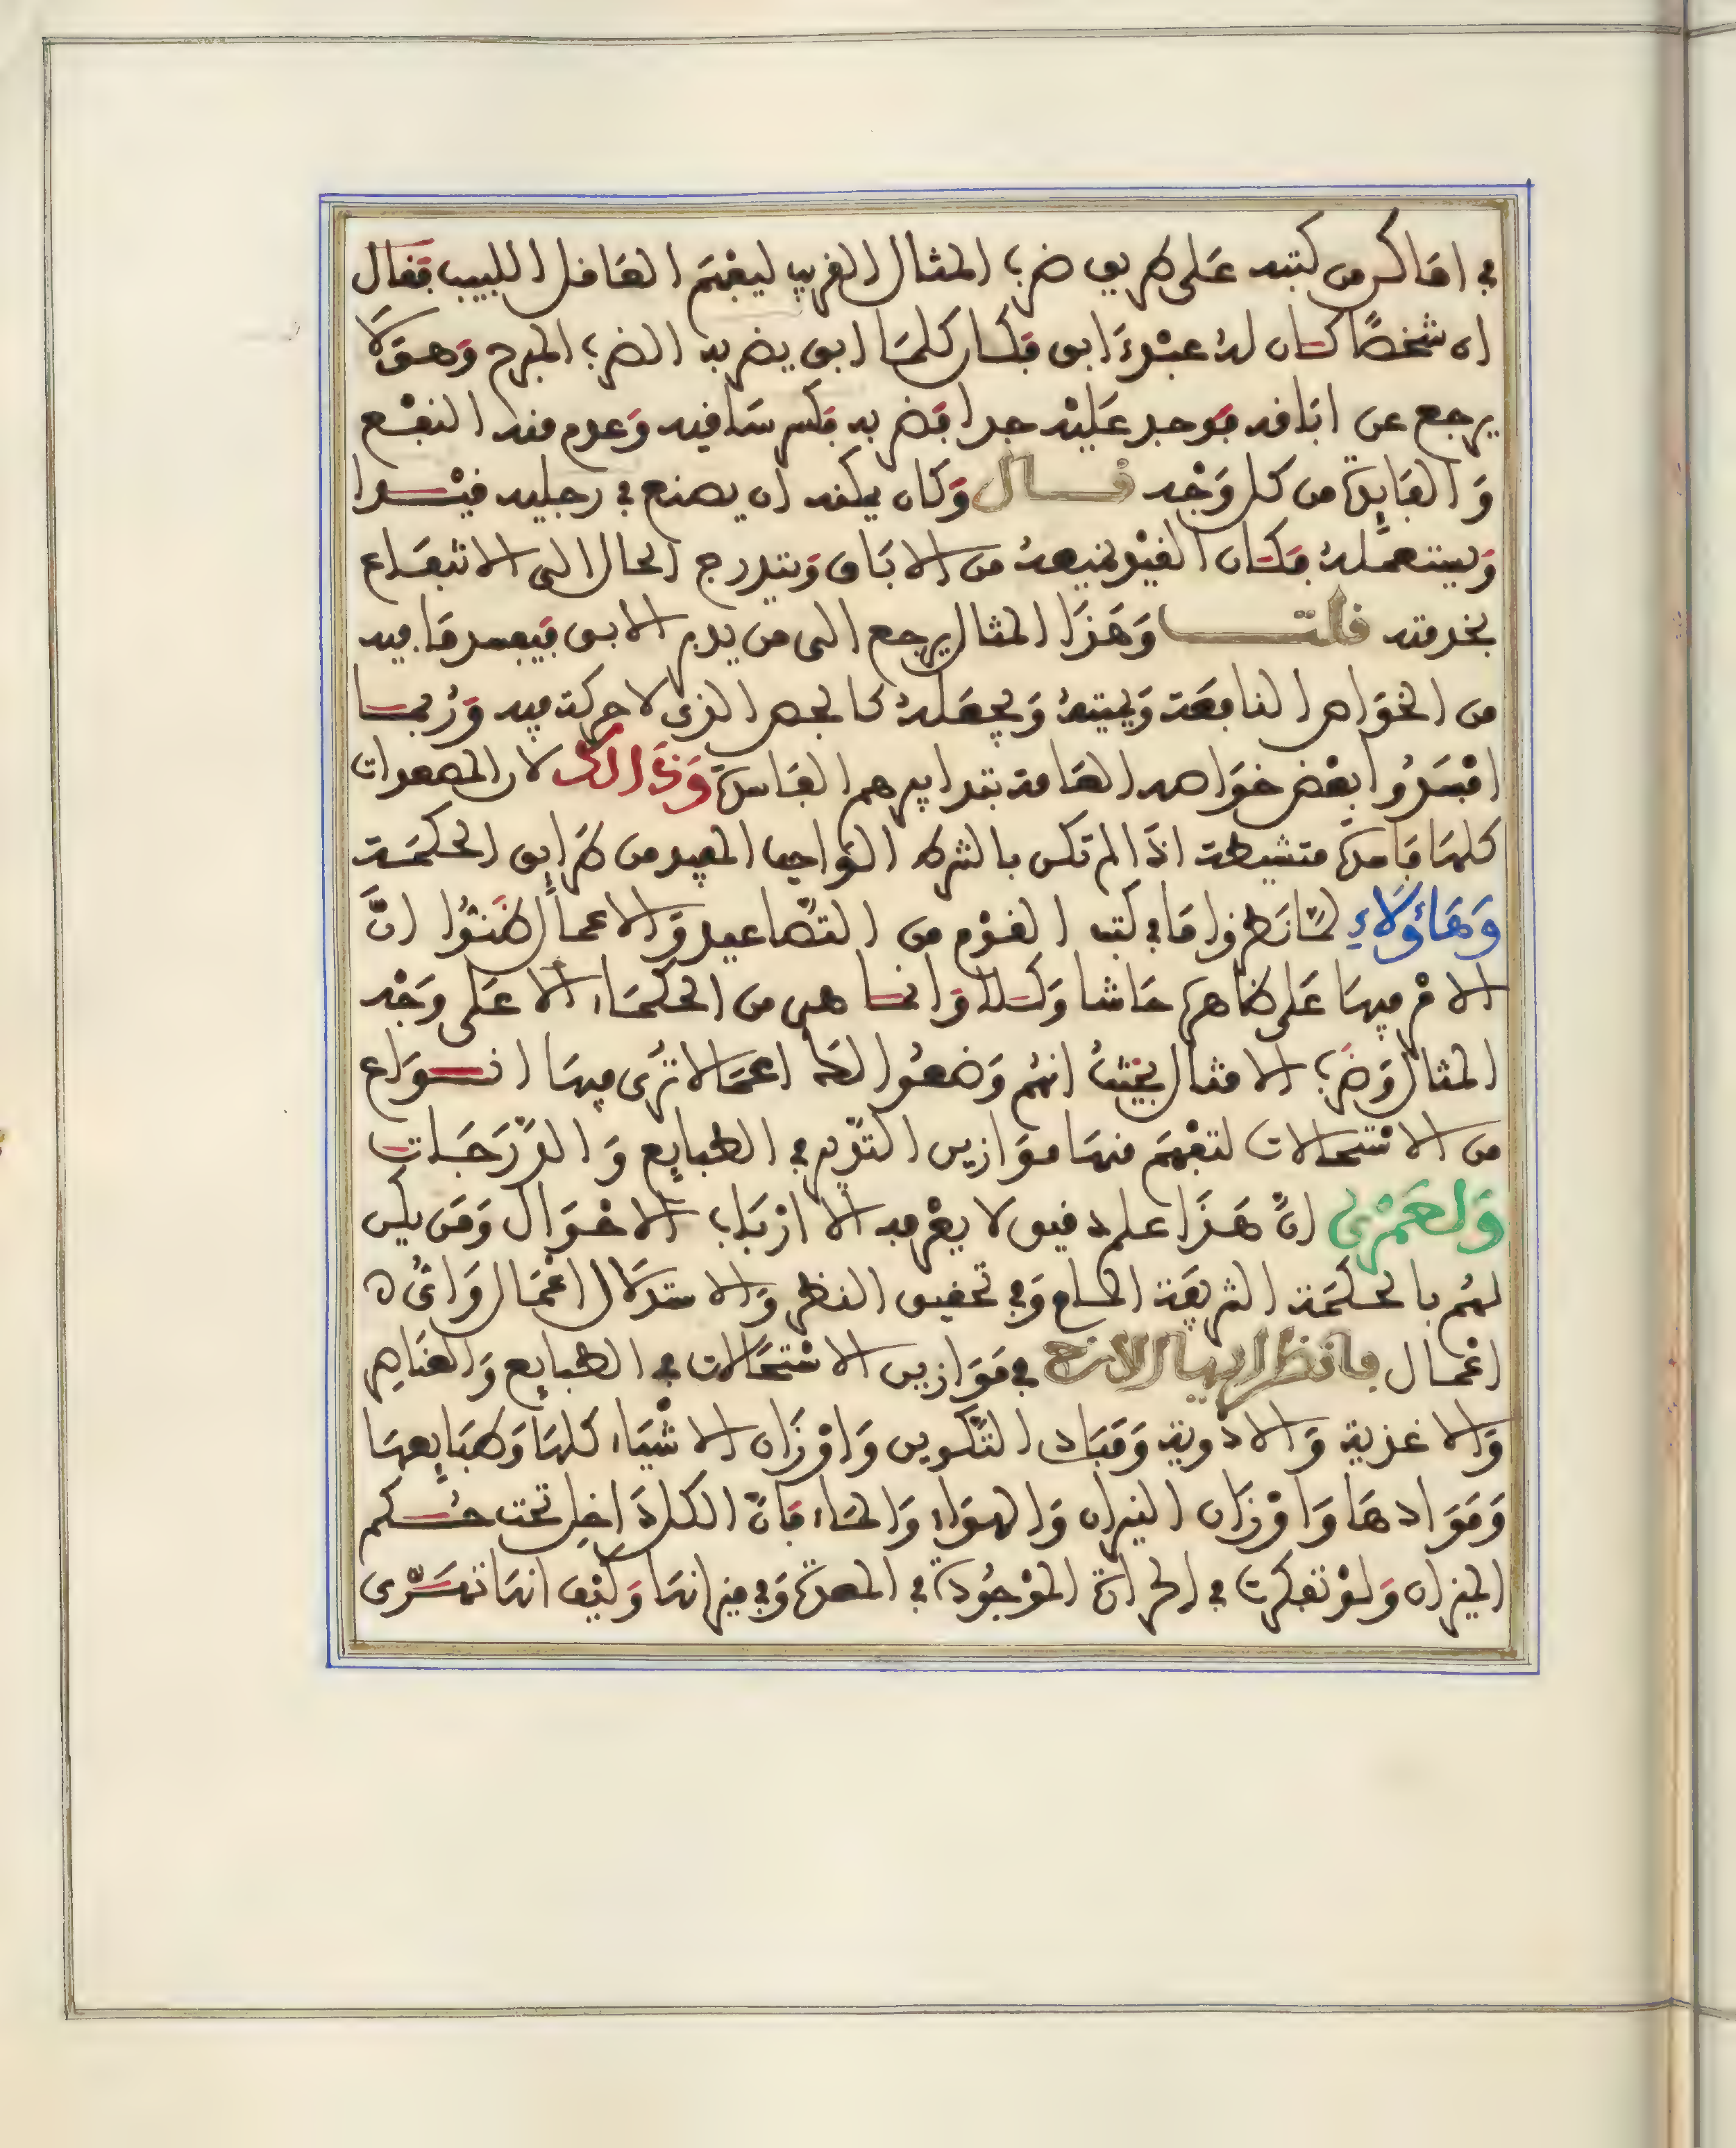 في اماكن من كتبه عَلى طريق ضرب المثال الغريب ليفْهَم العَاقل اللبيب فقال
ان شخصًا كان لهُ عبْدٌ ابق فكان كلمَا ابق يضربه الضرب المبرح وَهوَ لَا
يرجع عن ابَاقه فوجد عَليْه جدا فضربه فكسر سَاقيه وَعدم منه النفْع
وَالفَايِدة من كل وَجْه قال وَكان يمكنه ان يصنع في رجليه قيْدا
وَيستعمله فكان القيْد يمنعهُ من الابَاق وَيتدرج الحال الى الانتفَاع
بخدمته قلت وَهَذَا المثال يرجع الى من يدبر الابق فيفسد مَا فيه
من الخوَاص النافعَة وَيميتهُ وَيجعَلهُ كالجص الذى لا حركة فيه وَرُبمَا
افسَدُوا بعْض خوَاصه العَامة بتدابيرهم الفَاسدة وَذَالك لان المصعدات
كلهَا فَاسدَة متشيطة اذَا لم تكن بالشرط الوَاجب المفيد من طرَايِق الحكمَة
وَهَاؤلَاءِ لمَّا نَظروا مَا في كتب القوْم من التصَّاعيد وَالاعمَال ظَنوُّا انَّ
الامْر فيهَا عَلى ظَاهرهَا حَاشا وَكلا وَانمَا هى من الحكمَاء الا عَلى وَجْه
المثال وَضرْب الامثال بحيْثُ انهُم وَضعُوا لهَا اعمَالا تُرَى فيهَا انوَاع
من الاسْتحالات لتفْهَم منهَا موَازين التدْبير في الطبايِع وَالدَّرَجَات
وَلعَمْرى انَّ هَذَا علم دقيق لا يعْرفه الا ارْبَاب الاحْوَال وَمَن يكن
لهُم بالحكمَة الشريفَة المام وَفي تحقيق النظر وَالاستدلَال اعْمَال وَاىُّ
اعْمَال فانظر ايها الاخ في مَوَازين الاسْتحَالات في الطبايِع وَالعنَاصِر
وَالاغذية وَالادوية وَمَبَاد التكوين وَاوْزَان الاشْيَاء كلهَا وَطبَايِعهَا
وَمَوَادهَا وَاوْزَان النيران وَالهوَاء وَالمَاء فَانَّ الكل دَاخِل تحت حُكم
الميزان وَلوْ تفكرت في الحرَارة الموْجُودَة في المعدة وَفي ميزانهَا وَكيْف انهَا تمَرّى